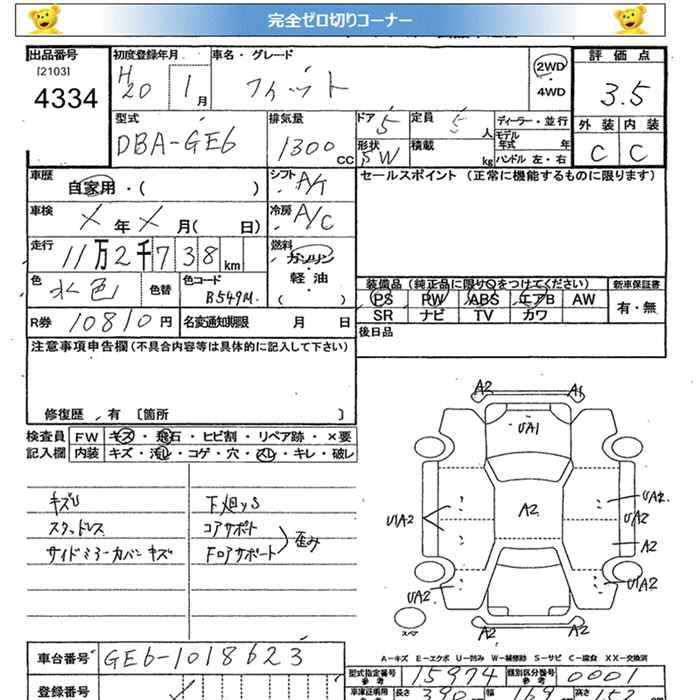 完全ゼロ切りコーナー
出品番号
[2103]
4334
初度登録年月
H20 1月
車名・グレード
フィット
2WD
・
4WD
評価点
3.5
外装 内装
C C
型式
DBA-GE6
排気量
1300cc
ドア
5
定員
5人
形状
5W
積載
kg
ディーラー・並行
モデル
年式 年
ハンドル 左・右
車歴
自家用・( )
シフト
A/T
セールスポイント (正常に機能するものに限ります)
車検
X年X月( 日)
冷房
A/C
走行
11万2千738km
燃料
ガソリン
軽・油
( )
色
水色
色替
色コード
B549M
装備品 (純正品に限り○をつけてください)
新車保証書
PS PW ABS エアB AW
SR ナビ TV カワ
有・無
R券 10810円
名変通知期限 月 日
後日品
注意事項申告欄(不具合内容等は具体的に記入して下さい)
修復歴 . 有 [箇所 ]
検査員
記入欄
FW キズ・飛石・ヒビ割・リペア跡・×要
内装 キズ・汚れ・コゲ・穴・スレ・キレ・破レ
キズU
スタッドレス
サイドミラーカバーキズ
下廻りS
コアサポート
Fロアサポート
歪み
A2 A1
UA1
A2
U1A2
UA2
U1A2
A2
UA2
U1A2
A2 A2
スペア
A-キズ E-エクボ U-凹み W-補修跡 S-サビ C-腐食 XX-交換済
車台番号 GE6-1018623
型式指定番号
参考
15974
類別区分番号
参考
0001
登録番号
車庫証明用
長さ 390
幅 169
高さ 15